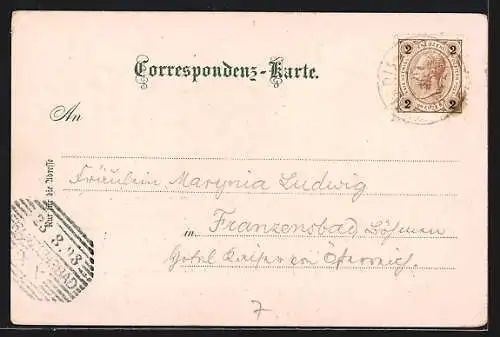 Correspondenz-Karte.
2 2
2 2
An
Nur für die Adresse
Fräulein Marynia Ludwig
in Franzensbad, Böhmen
Hotel Kaiser von Österreich.
23.8.98
7